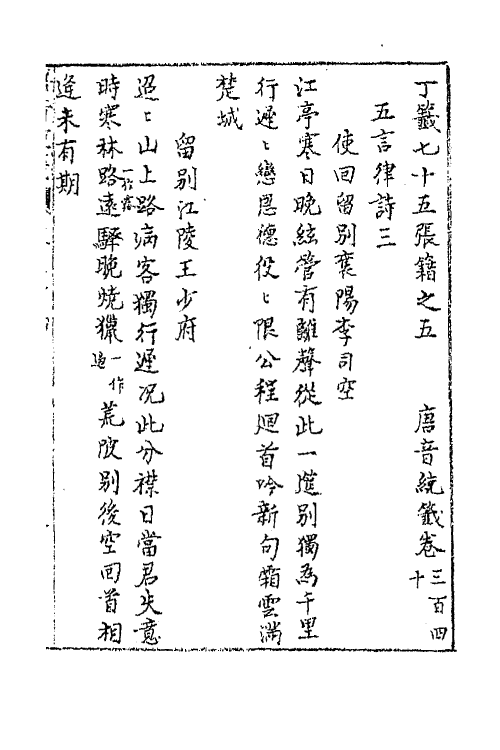 丁籤七十五張籍之五　　唐音統籤卷三百四十
五言律詩三
使回留別襄陽李司空
江亭寒日晚絃管有離聲從此一筵別獨為千里
行遲〻戀恩德役〻限公程廻首吟新句霜雲滿
楚城
留別江陵王少府
迢〻山上路病客獨行遲况此分襟日當君失意
時寒林路遠驛晚燒獵一作過荒陂别後空回首相
逢未有期